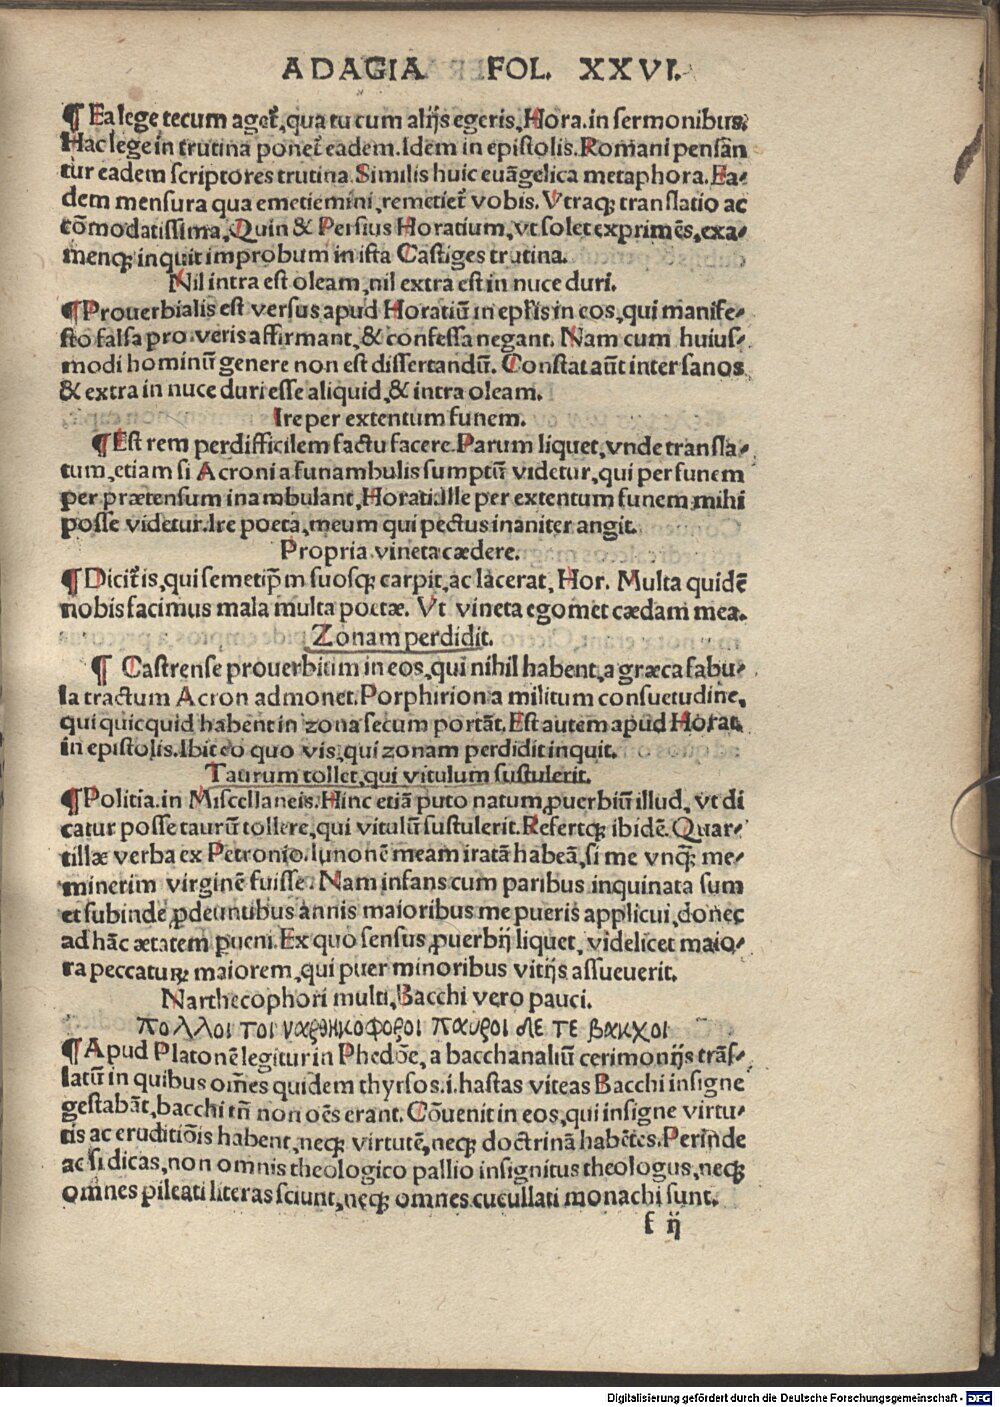 ADAGIA FOL. XXVI.
¶ Ea lege tecum aget̃, qua tu cum alijs egeris, Hora. in sermonibus.
Hac lege in trutina ponet̃ eadem. Idem in epistolis. Romani pensãn
tur eadem scriptores trutina. Similis huic euãgelica metaphora. Ea⸗
dem mensura qua emetiemini, remetiet̃ vobis. Vtraqꝫ translatio ac
cõmodatissima. Quin & Persius Horatium, vt solet exprimẽs, exa⸗
menqꝫ inquit improbum in ista Castiges trutina.
Nil intra est oleam, nil extra est in nuce duri.
¶ Prouerbialis est versus apud Horatiũ in ep̃lis in eos, qui manife⸗
sto falsa pro veris affirmant, & confessa negant. Nam cum huius⸗
modi hominũ genere non est dissertandũ. Constat aũt inter sanos
& extra in nuce duri esse aliquid, & intra oleam.
Ire per extentum funem.
¶ Est rem perdifficilem factu facere. Parum liquet, vnde transla⸗
tum, etiam si Acroni a funambulis sumptũ videtur, qui per funem
per prætensum inambulant, Horati. Ille per extentum funem mihi
posse videtur. Ire poeta, meum qui pectus inaniter angit.
Propria vineta cædere.
¶ Dicit̃ is, qui semetip̃m suosqꝫ carpit, ac lacerat, Hor. Multa quidẽ
nobis facimus mala multa poetæ. Vt vineta egomet cædam mea.
Zonam perdidit.
¶ Castrense prouerbium in eos, qui nihil habent, a græca fabu⸗
la tractum Acron admonet. Porphirion a militum consuetudine,
qui quicquid habent in zona secum portãt. Est autem apud Horat.
in epistolis. Ibit eo quo vis, qui zonam perdidit inquit.
Taurum tollet, qui vitulum sustulerit.
¶ Politia. in Miscellaneis. Hinc etiã puto natum ꝓuerbiũ illud, vt di
catur posse taurũ tollere, qui vitulũ sustulerit. Refertqꝫ ibidẽ. Quar⸗
tillæ verba ex Petronio. Iunonẽ meam iratã habeã, si me vnqꝫ̃ me⸗
minerim virginẽ fuisse. Nam infans cum paribus inquinata sum
et subinde ꝓdeuntibus annis maioribus me pueris applicui, donec
ad hãc ætatem pueni. Ex quo sensus ꝓuerbij liquet, videlicet maio⸗
ra peccaturꝝ maiorem, qui puer minoribus vitijs assueuerit.
Narthecophori multi, Bacchi vero pauci.
πολλοι τοι ναρθηκοφοροι παυροι δε τε βακχοι
¶ Apud Platonẽ legitur in Phedõe, a bacchanaliũ cerimonijs trãs⸗
latũ in quibus om̃es quidem thyrsos .i. hastas viteas Bacchi insigne
gestabãt, bacchi tñ non oẽs erant. Cõuenit in eos, qui insigne virtu⸗
tis ac eruditiõis habent, neqꝫ virtutẽ, neqꝫ doctrinã habẽtes. Perinde
ac si dicas, non omnis theologico pallio insignitus theologus, neqꝫ
omnes pileati literas sciunt, neqꝫ omnes cucullati monachi sunt.
f ij
Digitalisierung gefördert durch die Deutsche Forschungsgemeinschaft - DFG